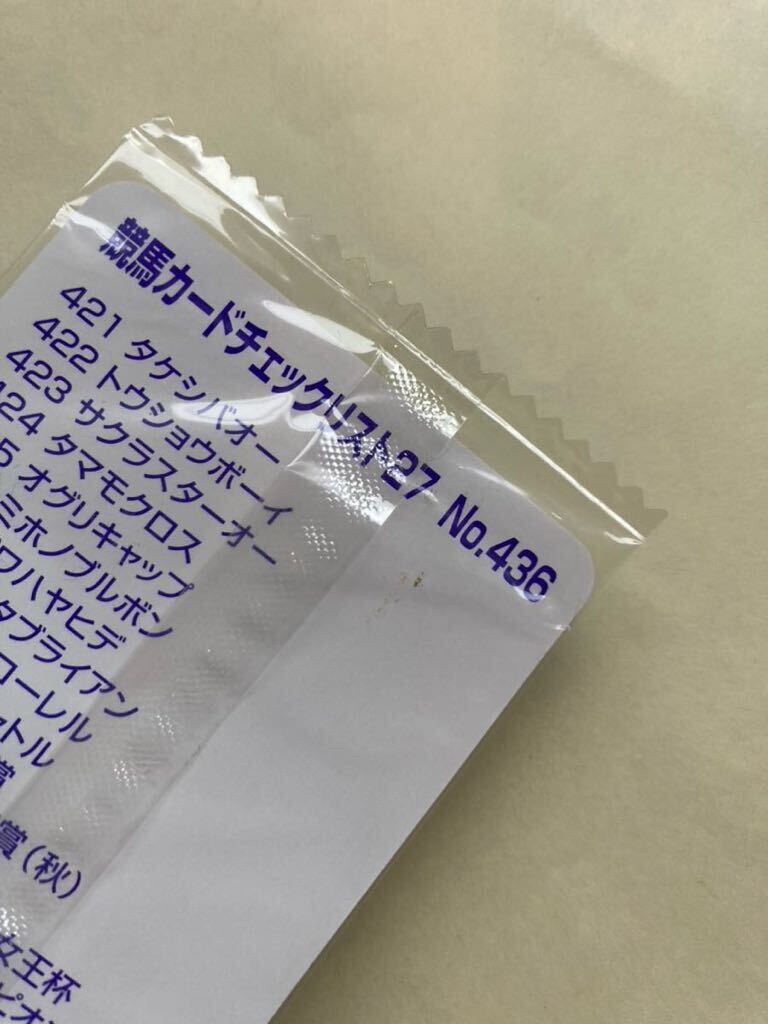 競馬カードチェックリスト27 No.436
421 タケシバオー
422 トウショウボーイ
423 サクラスターオー
24 タマモクロス
5 オグリキャップ
ミホノブルボン
ワハヤヒデ
タブライアン
ローレル
ャトル
賞
賞(秋)
女王杯
ピオ